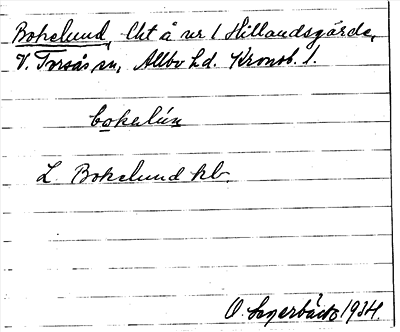 Bokelund, lht å nr 1 Hillandsgärde,
V. Torsås sn, Allbo hd. Kronob. l.
bokelún
L. Bokelund hb
O. Lagerbäck 1934.